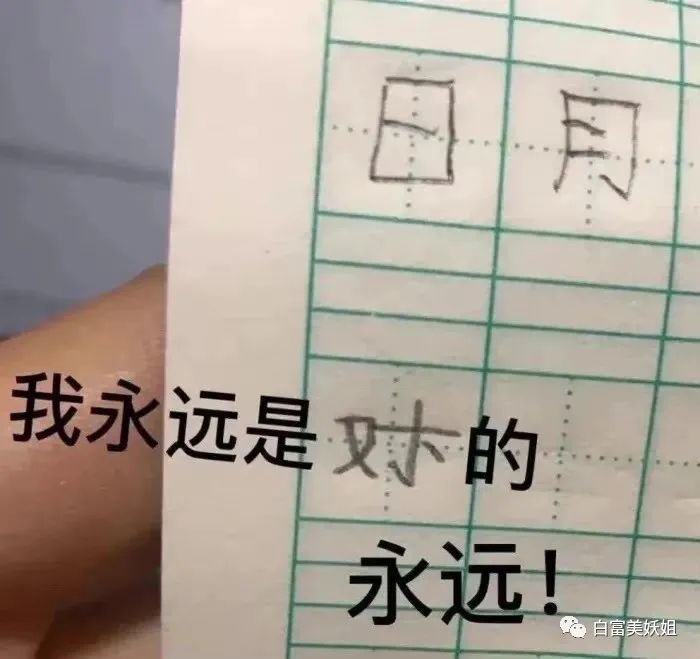 日 月
我永远是对的
永远！
白富美妖姐